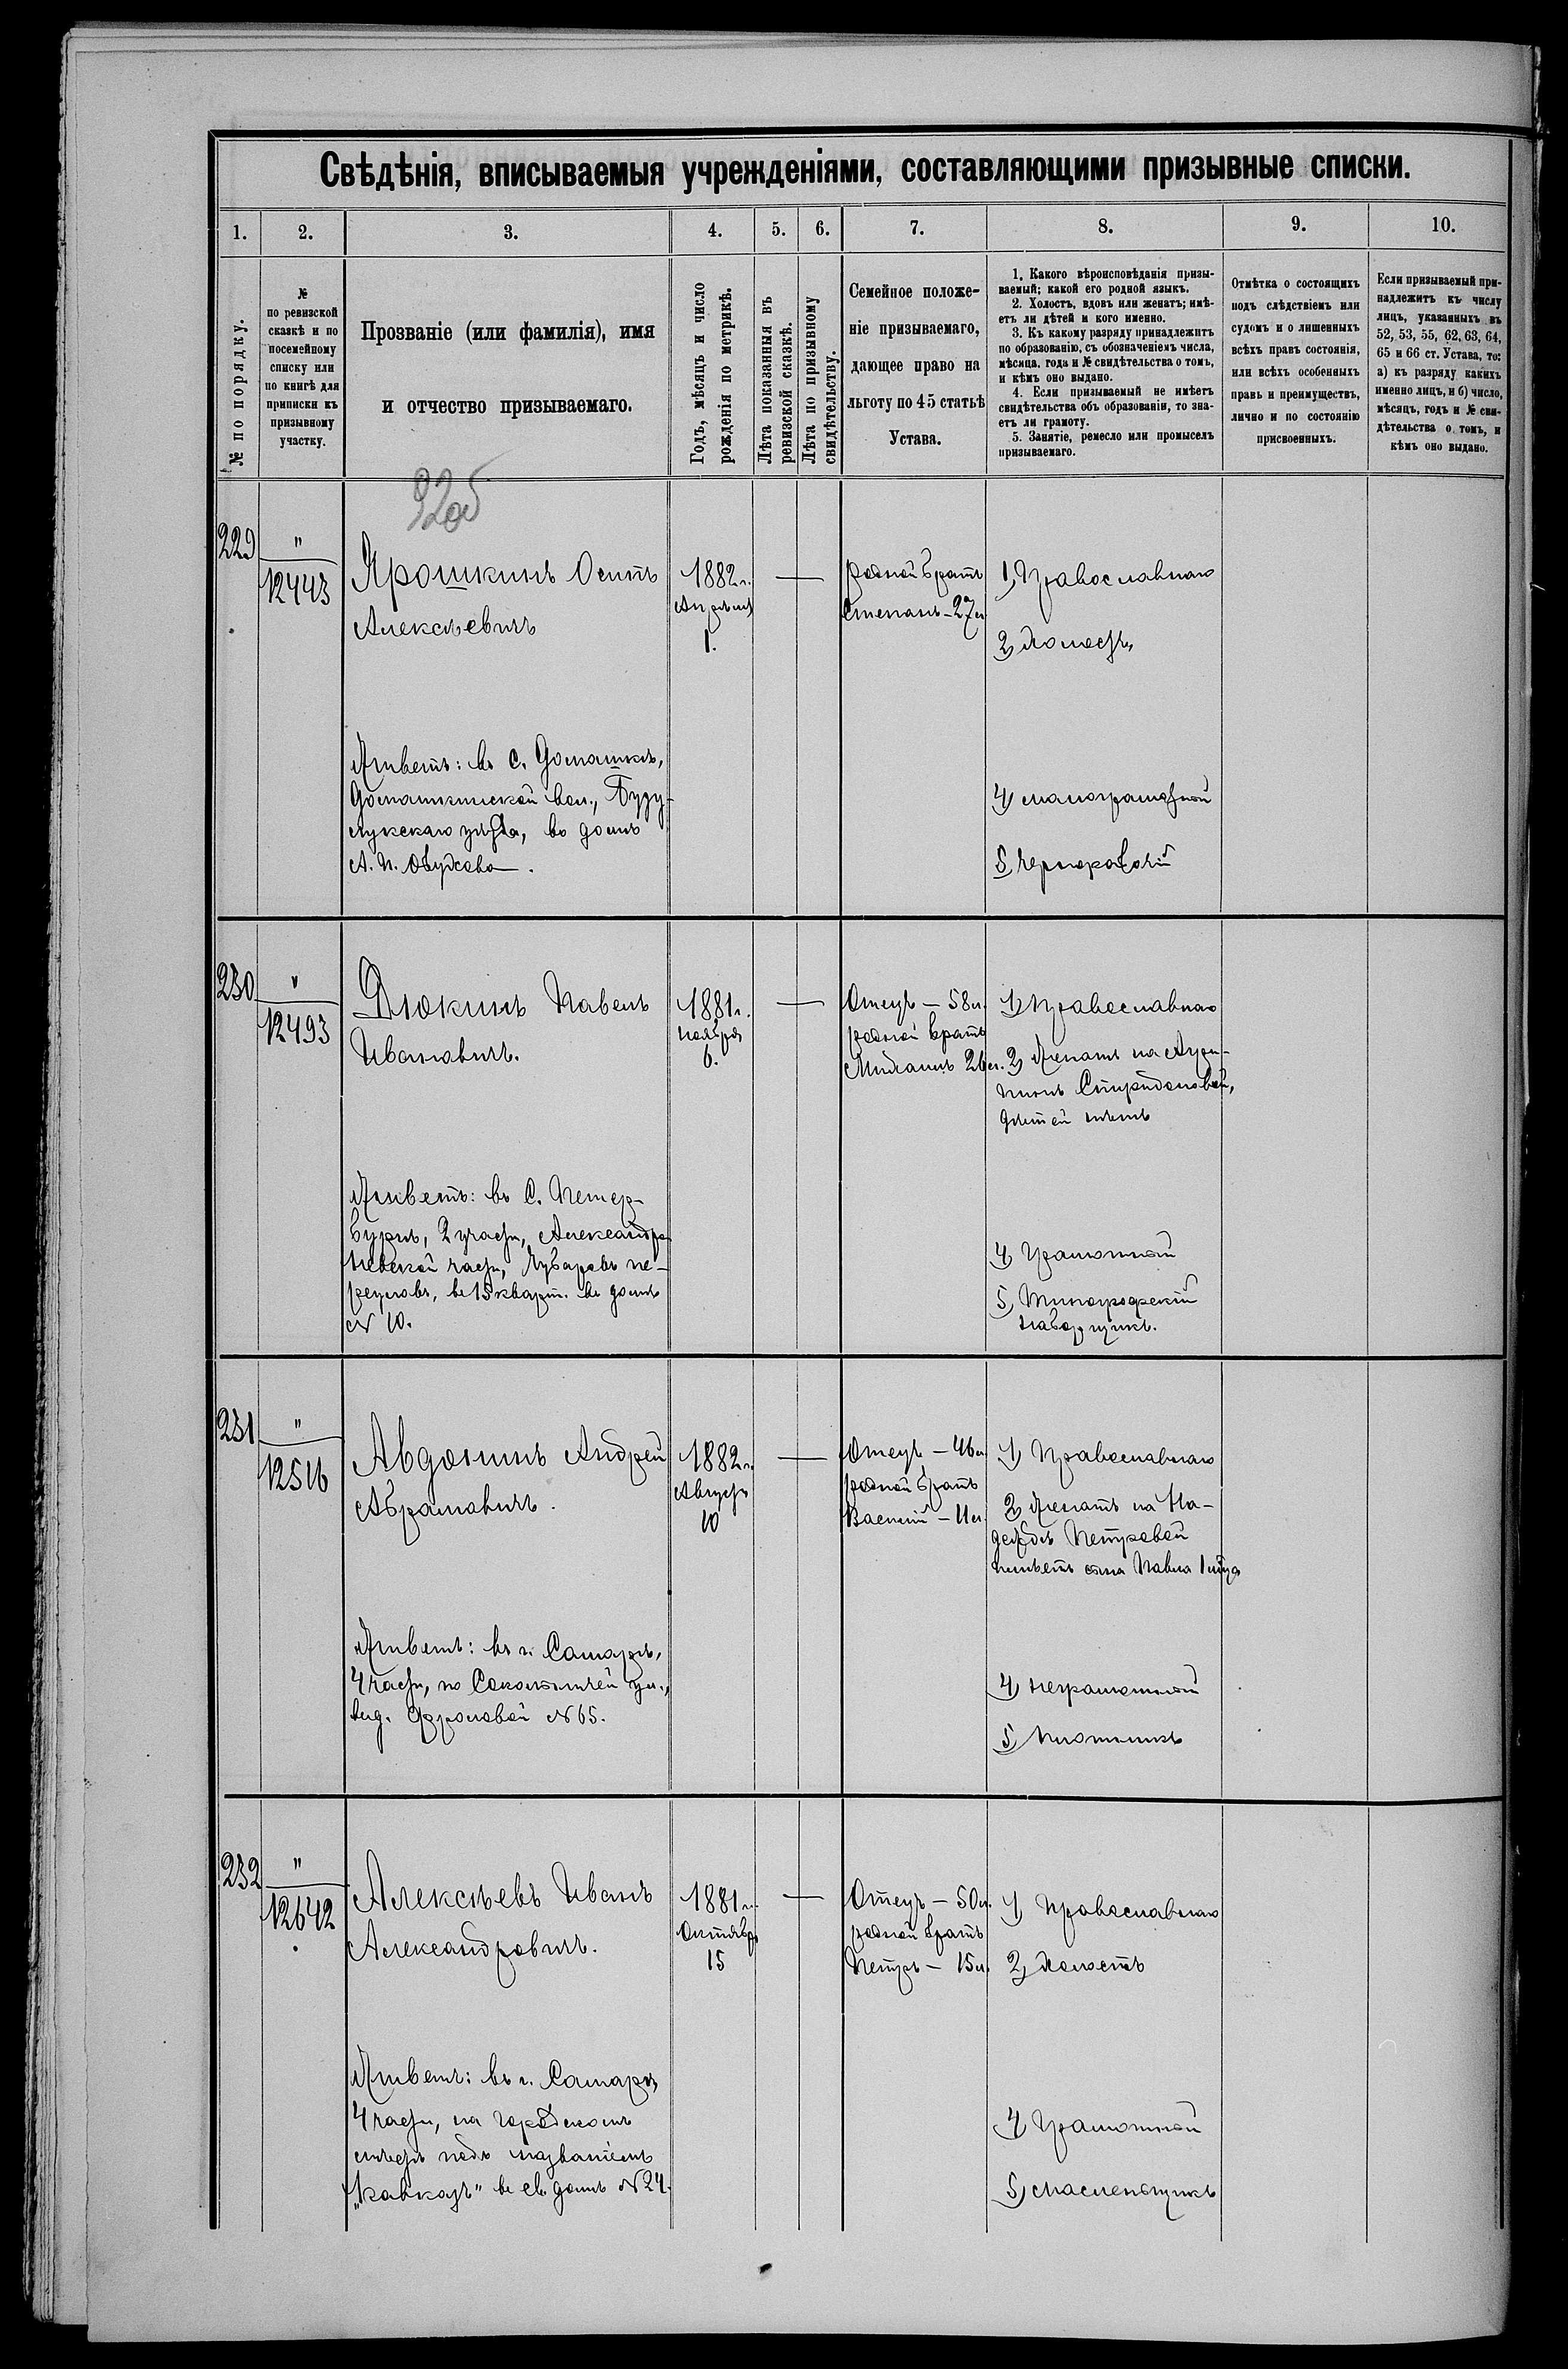 Свѣдѣнія, вписываемыя учрежденіями, составляющими призывные списки.
1. 2. 3. 4. 5. 6. 7. 8. 9. 10.
№ по порядку.
№
по ревизской
сказкѣ и по
посемейному
списку или
по книгѣ для
приписки къ
призывному
участку.
Прозваніе (или фамилія), имя
и отчество призываемаго.
Годъ, мѣсяцъ и число
рожденія по метрикѣ.
Лѣта показанныя въ
ревизской сказкѣ.
Лѣта по призывному
свидѣтельству.
Семейное положе-
ніе призываемаго,
дающее право на
льготу по 45 статьѣ
Устава.
1. Какого вѣроисповѣданія призы-
ваемый; какой его родной языкъ.
2. Холостъ, вдовъ или женатъ; имѣ-
етъ ли дѣтей и кого именно.
3. Къ какому разряду принадлежитъ
по образованію, съ обозначеніемъ числа,
мѣсяца, года и № свидѣтельства о томъ,
и кѣмъ оно выдано.
4. Если призываемый не имѣетъ
свидѣтельства объ образованіи, то зна-
етъ ли грамоту.
5. Занятіе, ремесло или промыселъ
призываемаго.
Отмѣтка о состоящихъ
подъ слѣдствіемъ или
судомъ и о лишенныхъ
всѣхъ правъ состоянія,
или всѣхъ особенныхъ
правъ и преимуществъ,
лично и по состоянію
присвоенныхъ.
Если призываемый при-
надлежитъ къ числу
лицъ, указанныхъ въ
52, 53, 55, 62, 63, 64,
65 и 66 ст. Устава, то:
а) къ разряду какихъ
именно лицъ, и б) число,
мѣсяцъ, годъ и № сви-
дѣтельства о томъ, и
кѣмъ оно выдано.
92об
229
"
12443
Ярошкинъ Осипъ
Алексѣевичъ
1882 г.
Апрѣля
1.
—
родной братъ
Степанъ – 27 л
1) Православнаго
2) Холостъ,
Живетъ: въ с. Домашкѣ,
Домашкинской вол., Бузу-
лукскаго уѣзда, въ домѣ
А. П.
4) малограмотной
5) Чернорабочій
230
"
12493
Дюкинъ Павелъ
Ивановичъ.
1881 г.
ноября
6.
—
Отецъ – 58 л.
родной братъ
Михаилъ 26 л.
1) Православнаго
2) Женатъ на Агри-
пинѣ Спиридоновой,
дѣтей нѣтъ
Живетъ: въ С. Петер-
бургѣ, 2 участ., Александро
Невской части, Чубаровъ пе-
реулокъ, въ 15 кварт. въ домѣ
№ 10.
4) Грамотной
5) Типографскій
наборщикъ.
231
"
12516
Авдонинъ Андрей
Абрамовичъ.
1882 г.
Августа
10
—
Отецъ – 46 л
родной братъ
Василій – 11 л.
1) Православнаго
2) Женатъ на На-
деждѣ Петровой
имѣетъ сына Павла 1 года
Живетъ: въ г. Самарѣ,
4 части, по Сокольничей ул.,
Фроловой № 65.
4) неграмотной
5) Плотникъ
232
"
12642
Алексѣевъ Иванъ
Александровичъ.
1881 г.
Октября
15
—
Отецъ – 50 л.
родной братъ
Петръ – 15 л.
1) Православнаго
2) Холостъ
Живетъ: въ г. Самарѣ,
4 части, на городскомъ
мѣстѣ подъ названіемъ
„Кавказъ" въ св. домѣ № 24.
4) Грамотной
5) Масленщикъ